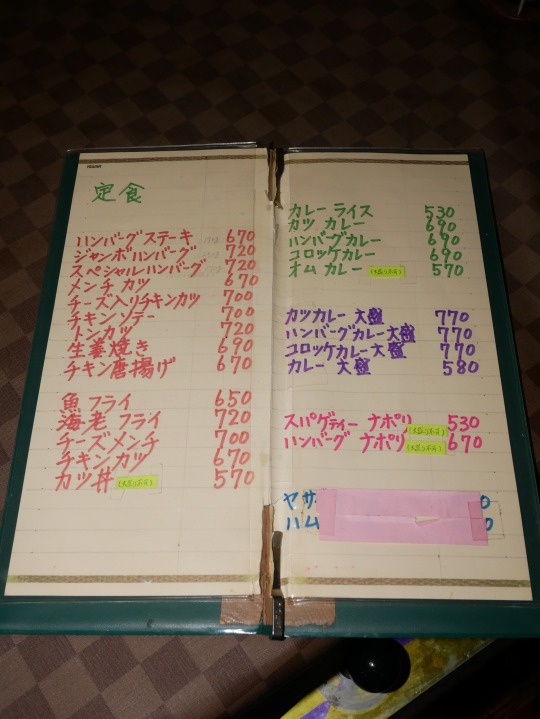 定食
ハンバーグステーキ 670
ジャンボハンバーグ 720
スペシャルハンバーグ 720
メンチカツ 670
チーズ入りチキンカツ 700
チキンソテー 700
トンカツ 720
生姜焼き 690
チキン唐揚げ 670
魚フライ 650
海老フライ 720
チーズメンチ 700
チキンカツ 670
カツ丼 570
カレーライス 530
カツカレー 690
ハンバーグカレー 690
コロッケカレー 690
オムカレー 570
カツカレー大盛 770
ハンバーグカレー大盛 770
コロッケカレー大盛 770
カレー大盛 580
スパゲティーナポリ 530
ハンバーグナポリ 670
ヤサ 0
ハム 0